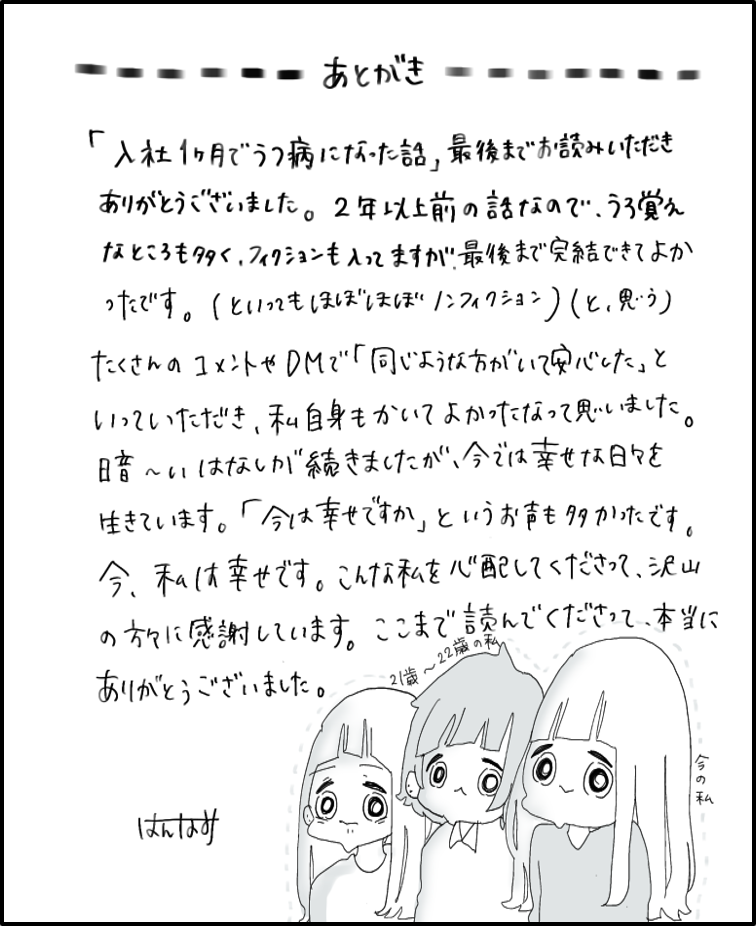 あとがき
「入社1ヶ月でうつ病になった話」最後までお読みいただき
ありがとうございました。2年以上前の話なので、うろ覚え
なところも多く、フィクションも入ってますが、最後まで完結できてよか
ったです。(といってもほぼほぼノンフィクション)(と、思う)
たくさんのコメントやDMで「同じような方がいて安心した」と
いっていただき、私自身もかいてよかったなって思いました。
暗〜いはなしが続きましたが、今では幸せな日々を
生きています。「今は幸せですか」というお声も多かったです。
今、私は幸せです。こんな私を心配してくださって、沢山
の方々に感謝しています。ここまで読んでくださって、本当に
ありがとうございました。
21歳〜22歳の私
今の私
はんなみ